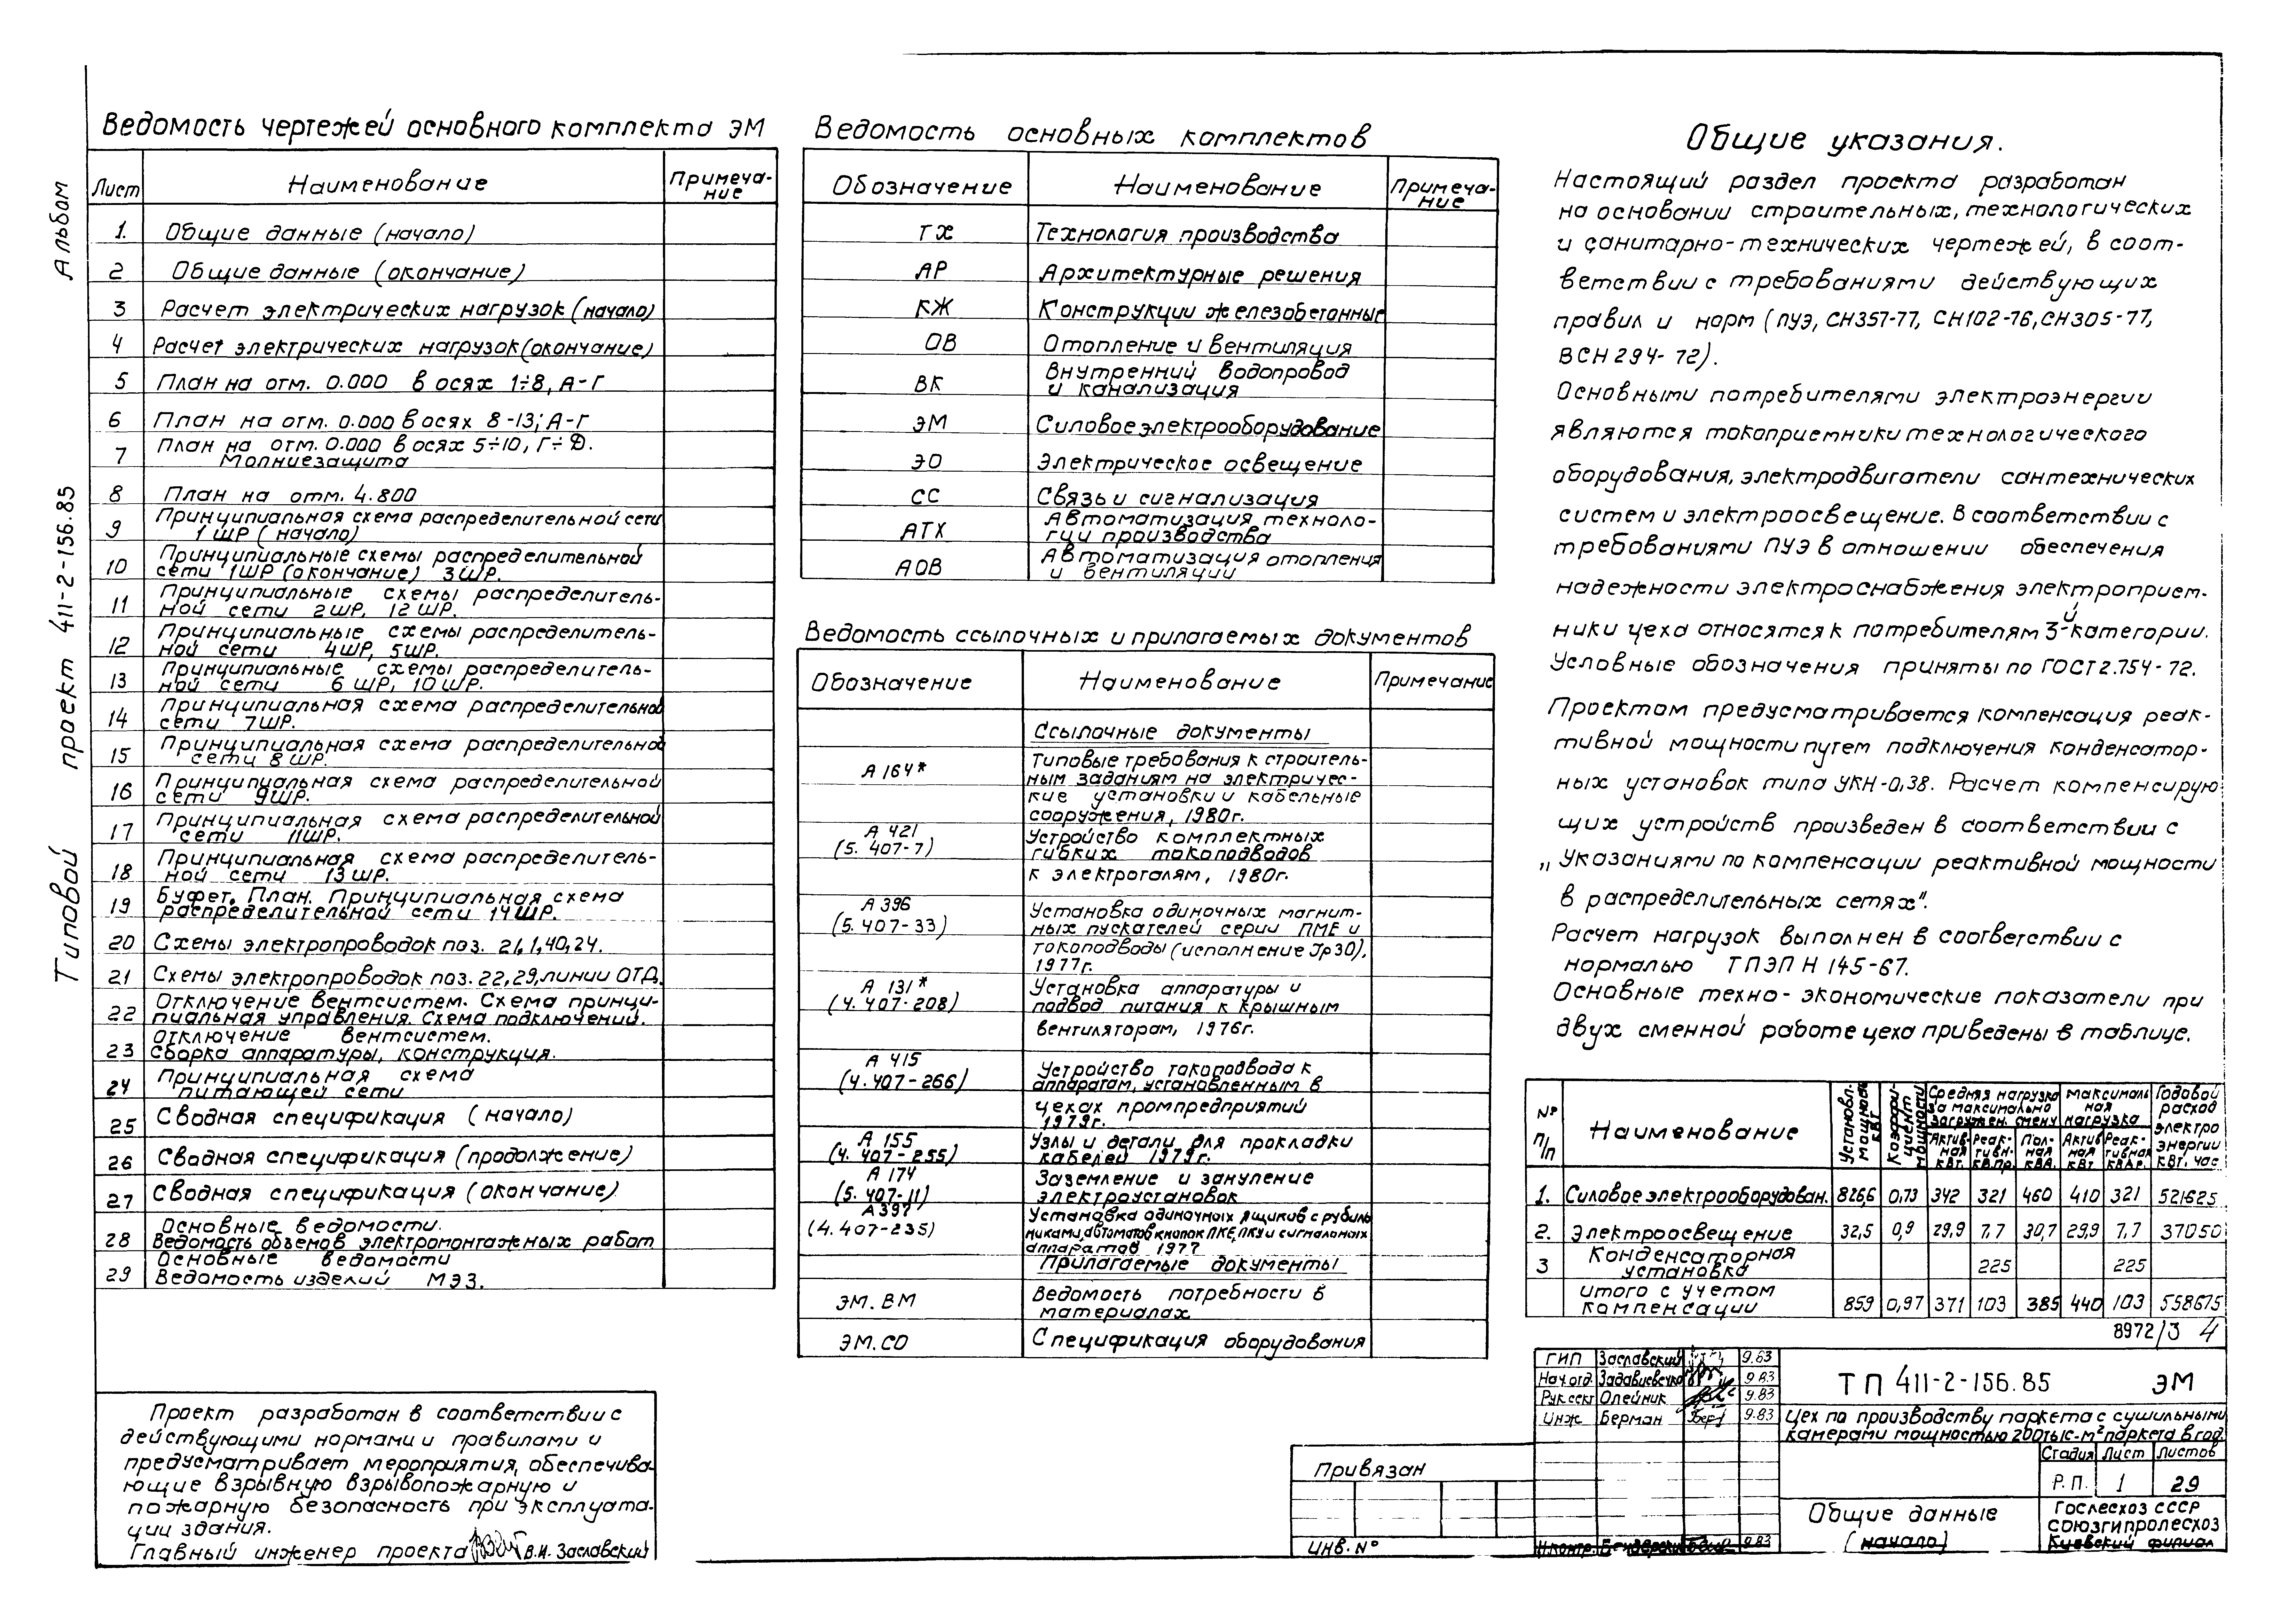 Альбом
Типовой проект 411-2-156.85
Ведомость чертежей основного комплекта ЭМ
Лист Наименование Примеча-
ние
1. Общие данные (начало)
2 Общие данные (окончание)
3 Расчет электрических нагрузок (начало)
4 Расчет электрических нагрузок (окончание)
5 План на отм. 0.000 в осях 1÷8, А-Г
6 План на отм. 0.000 в осях 8-13; А-Г
7 План на отм. 0.000 в осях 5÷10, Г÷Д.
Молниезащита
8 План на отм. 4.800
9 Принципиальная схема распределительной сети
1ШР (начало)
10 Принципиальные схемы распределительной
сети 1ШР (окончание) 3ШР.
11 Принципиальные схемы распределитель-
ной сети 2ШР, 12ШР.
12 Принципиальные схемы распределитель-
ной сети 4ШР, 5ШР.
13 Принципиальные схемы распределитель-
ной сети 6ШР, 10ШР.
14 Принципиальная схема распределительной
сети 7ШР.
15 Принципиальная схема распределительной
сети 8ШР.
16 Принципиальная схема распределительной
сети 9ШР.
17 Принципиальная схема распределительной
сети 11ШР.
18 Принципиальная схема распределитель-
ной сети 13ШР.
19 Буфет. План. Принципиальная схема
распределительной сети 14ШР.
20 Схемы электропроводок поз. 21,1,40,24.
21 Схемы электропроводок поз. 22,29,линии ОТД.
22 Отключение вентсистем. Схема принци-
пиальная управления. Схема подключений.
23 Отключение вентсистем.
Сборка аппаратуры, конструкция.
24 Принципиальная схема
питающей сети
25 Сводная спецификация (начало)
26 Сводная спецификация (продолжение)
27 Сводная спецификация (окончание)
28 Основные ведомости.
Ведомость объемов электромонтажных работ
29 Основные ведомости
Ведомость изделий МЭЗ.
Проект разработан в соответствии с
действующими нормами и правилами и
предусматривает мероприятия, обеспечива-
ющие взрывную взрывопожарную и
пожарную безопасность при эксплуата-
ции здания.
Главный инженер проекта В.И. Заславский
Ведомость основных комплектов
Обозначение Наименование Примеча-
ние
ТХ Технология производства
АР Архитектурные решения
КЖ Конструкции железобетонные
ОВ Отопление и вентиляция
ВК Внутренний водопровод
и канализация
ЭМ Силовое электрооборудование
ЭО Электрическое освещение
СС Связь и сигнализация
АТХ Автоматизация техноло-
гии производства
АОВ Автоматизация отопления
и вентиляции
Ведомость ссылочных и прилагаемых документов
Обозначение Наименование Примечание
Ссылочные документы
А 164* Типовые требования к строитель-
ным заданиям на электричес-
кие установки и кабельные
сооружения, 1980г.
А 421
(5. 407-7)
Устройство комплектных
гибких токоподводов
к электроталям, 1980г.
А 396
(5. 407-33)
Установка одиночных магнит-
ных пускателей серии ПМЕ и
токоподводы (исполнение Jp30),
1977г.
А 131*
(4. 407-208)
Установка аппаратуры и
подвод питания к крышным
вентиляторам, 1976г.
А 415
(4. 407-266)
Устройство токоподвода к
аппаратам, установленным в
цехах промпредприятий
1979г.
А 155
(4. 407-255)
Узлы и детали для прокладки
кабелей 1979г.
А 174
(5. 407-11)
Заземление и зануление
электроустановок
А397
(4. 407-235)
Установка одиночных ящиков с рубиль
никами, автоматов кнопок ПКЕ, ПКУ и сигнальных
аппаратов 1977
Прилагаемые документы
ЭМ. ВМ Ведомость потребности в
материалах
ЭМ. СО Спецификация оборудования
Общие указания.
Настоящий раздел проекта разработан
на основании строительных, технологических
и санитарно-технических чертежей, в соот-
ветствии с требованиями действующих
правил и норм (ПУЭ, СН357-77, СН102-76, СН305-77,
ВСН 294-72).
Основными потребителями электроэнергии
являются токоприемники технологического
оборудования, электродвигатели сантехнических
систем и электроосвещение. В соответствии с
требованиями ПУЭ в отношении обеспечения
надежности электроснабжения электроприем-
ники цеха относятся к потребителям 3-й категории.
Условные обозначения приняты по ГОСТ 2.754-72.
Проектом предусматривается компенсация реак-
тивной мощности путем подключения конденсатор-
ных установок типа УКН-0,38. Расчет компенсирую
щих устройств произведен в соответствии с
„Указаниями по компенсации реактивной мощности
в распределительных сетях".
Расчет нагрузок выполнен в соответствии с
нормалью ТПЭП Н 145-67.
Основные техно-экономические показатели при
двух сменной работе цеха приведены в таблице.
№ п/п Наименование Установл. мощность кВт Коэффи-циент мощности Средняя нагрузка за максимально загружен. смену Максималь ная нагрузка Годовой расход электро энергии кВт. час
Актив-ная кВт. Реак-тивн. кВАр. Пол-ная кВА. Актив ная кВт Реак-тивная кВАр.
1. Силовое электрооборудован. 826,6 0,73 342 321 460 410 321 521625
2. Электроосвещение 32,5 0,9 29,9 7,7 30,7 29,9 7,7 37050
3 Конденсаторная
установка 225 225
Итого с учетом
компенсации 859 0,97 371 103 385 440 103 558675
8972/3 4
ГИП Заславский 9.83
Нач.отд 9.83
Рук.сект Олейник 9.83
Инж Берман 9.83
Н.контр. 9.83
ТП 411-2-156.85 ЭМ
Цех по производству паркета с сушильными
камерами мощностью 200тыс.м² паркета в год
Стадия Лист Листов
Р.П. 1 29
Общие данные
(начало)
Гослесхоз СССР
СОЮЗГИПРОЛЕСХОЗ
Киевский филиал
Привязан
ИНВ. №